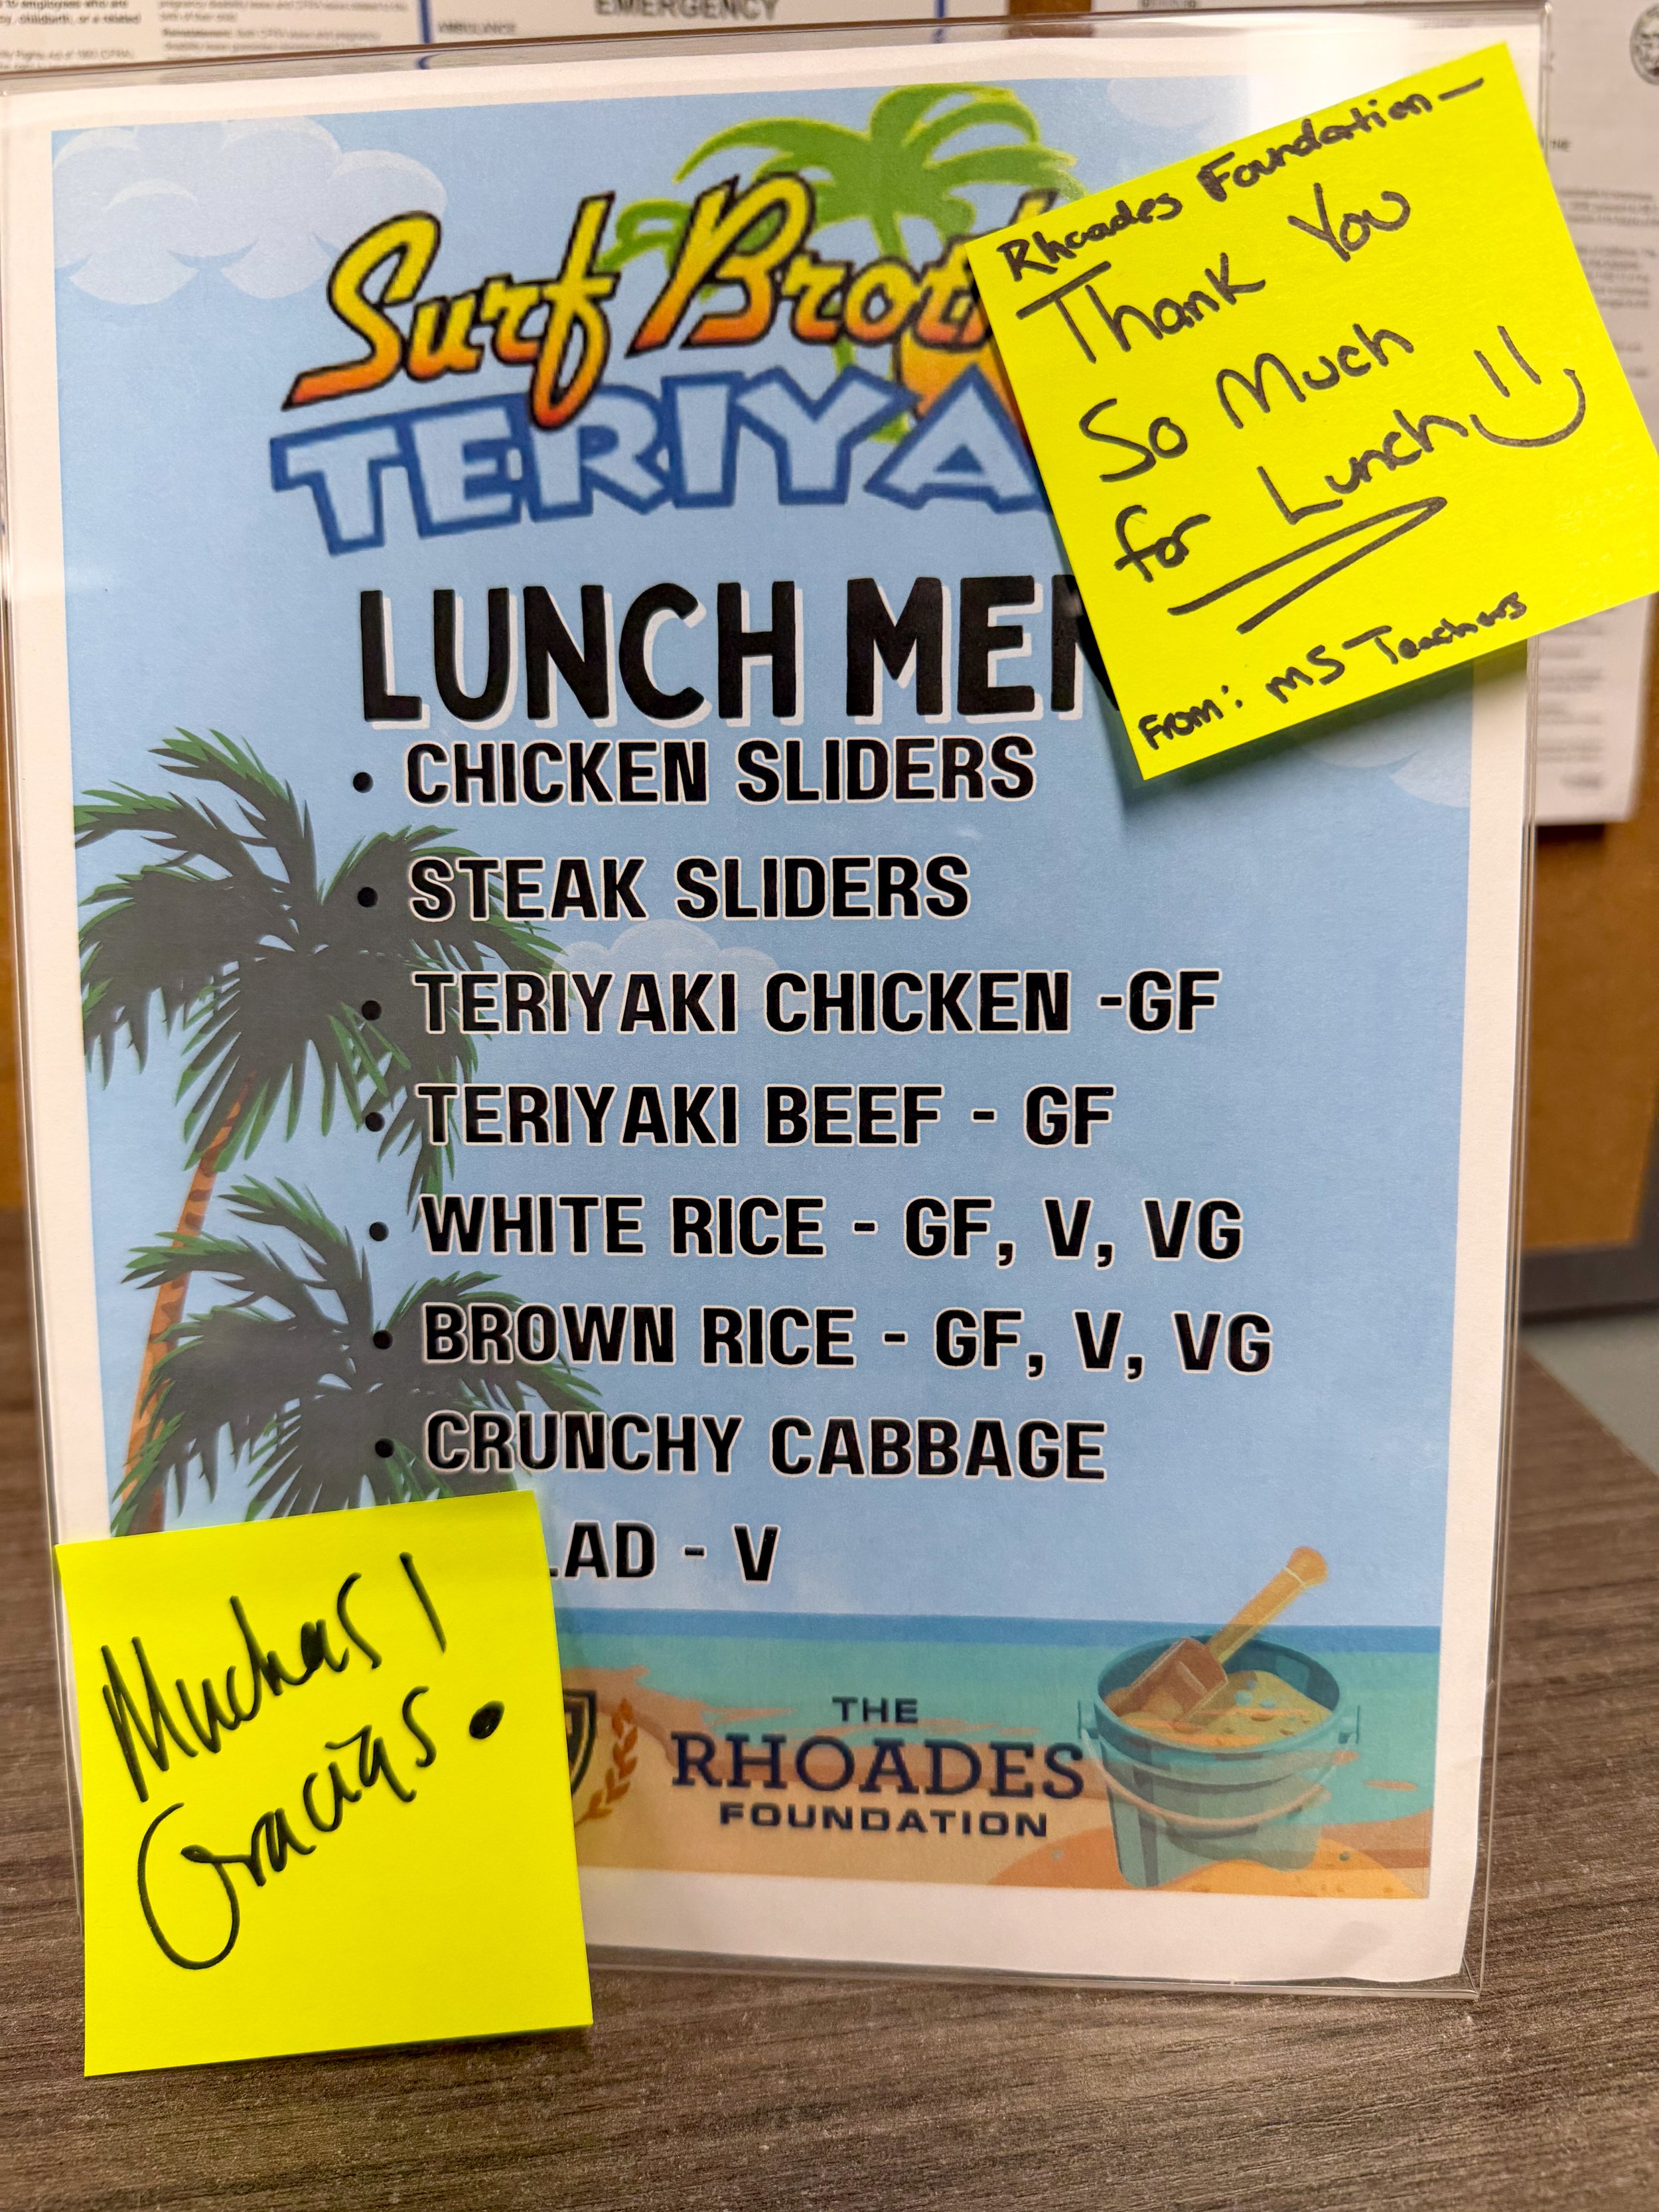 EMERGENCY
Surf Broth
TERIYA
LUNCH MEN
• CHICKEN SLIDERS
• STEAK SLIDERS
• TERIYAKI CHICKEN -GF
• TERIYAKI BEEF - GF
• WHITE RICE - GF, V, VG
• BROWN RICE - GF, V, VG
• CRUNCHY CABBAGE
LAD - V
THE
RHOADES
FOUNDATION
Rhoades Foundation—
Thank You
So Much
for Lunch
From: MS Teachers
Muchas!
Gracias.